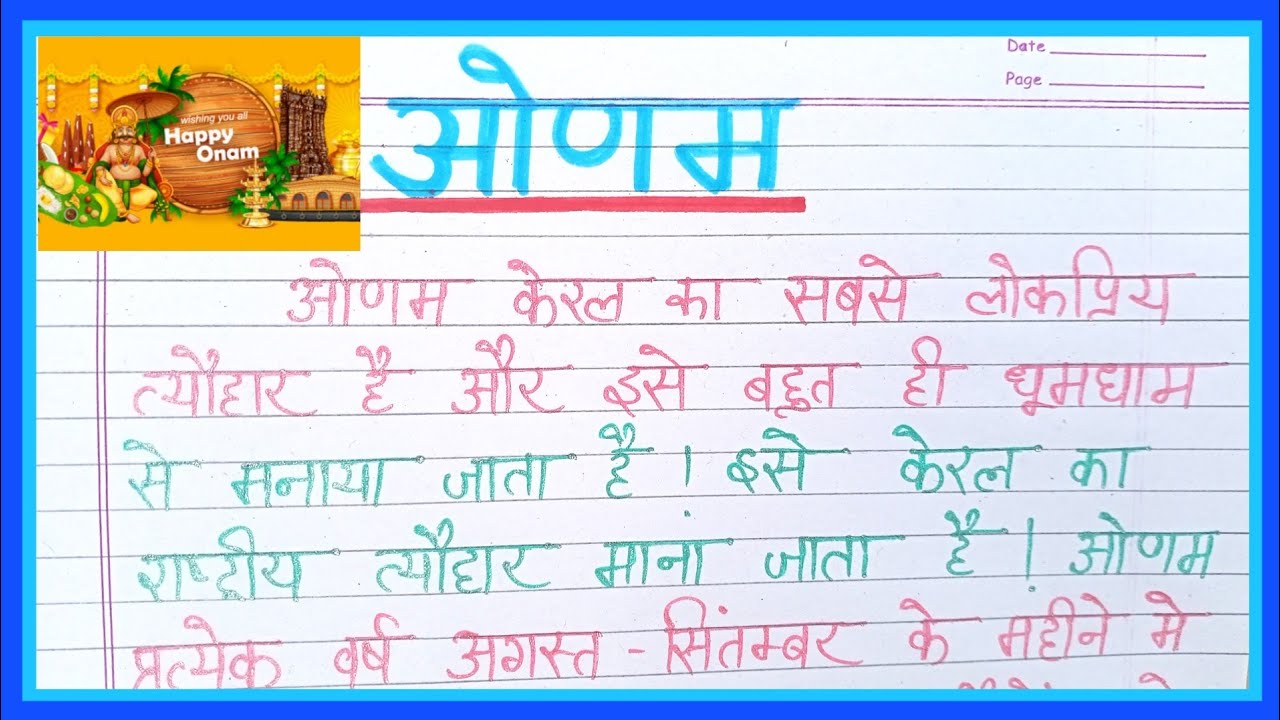 Date
Page
wishing you all
Happy
Onam
ओणम
ओणम केरल का सबसे लोकप्रिय
त्यौहार है और इसे बहुत ही धूमधाम
से मनाया जाता है। इसे केरल का
राष्ट्रीय त्यौहार मानां जाता है। ओणम
प्रत्येक वर्ष अगस्त - सितंम्बर के महीने मे